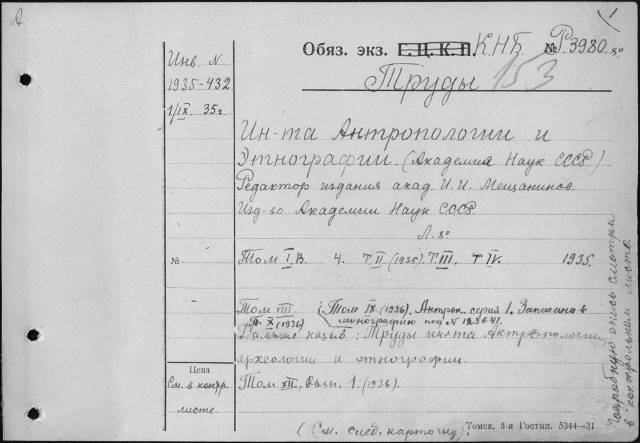 А
1
Инв. N
1935-432
1/IX 35г.
Обяз. экз. Г.Ц.К.П. КНБ № Р3980 8°
Труды
153
Ин-та Антропологии и
Этнографии. (Академия Наук СССР)
Редактор издания акад. И. И. Мещанинов.
Изд-во Академии Наук СССР
Л. 8°
№
Том I, В. 4. т. II (1935). Т. III. т IV. 1935.
Том VIII (Том IX (1936). Антроп. серия 1. Записана в
Т. X (1936) монографию под N 123641.
Дальше назыв: Труды ин-та Антропологии,
археологии и этнографии.
Цена
См. в контр.
листе.
Том XII, вып. 1. (1936).
(См. след. карточку)
Томск. 3-я Гостип. 5344—31
Подробную опись смотри
в контрольном листе.